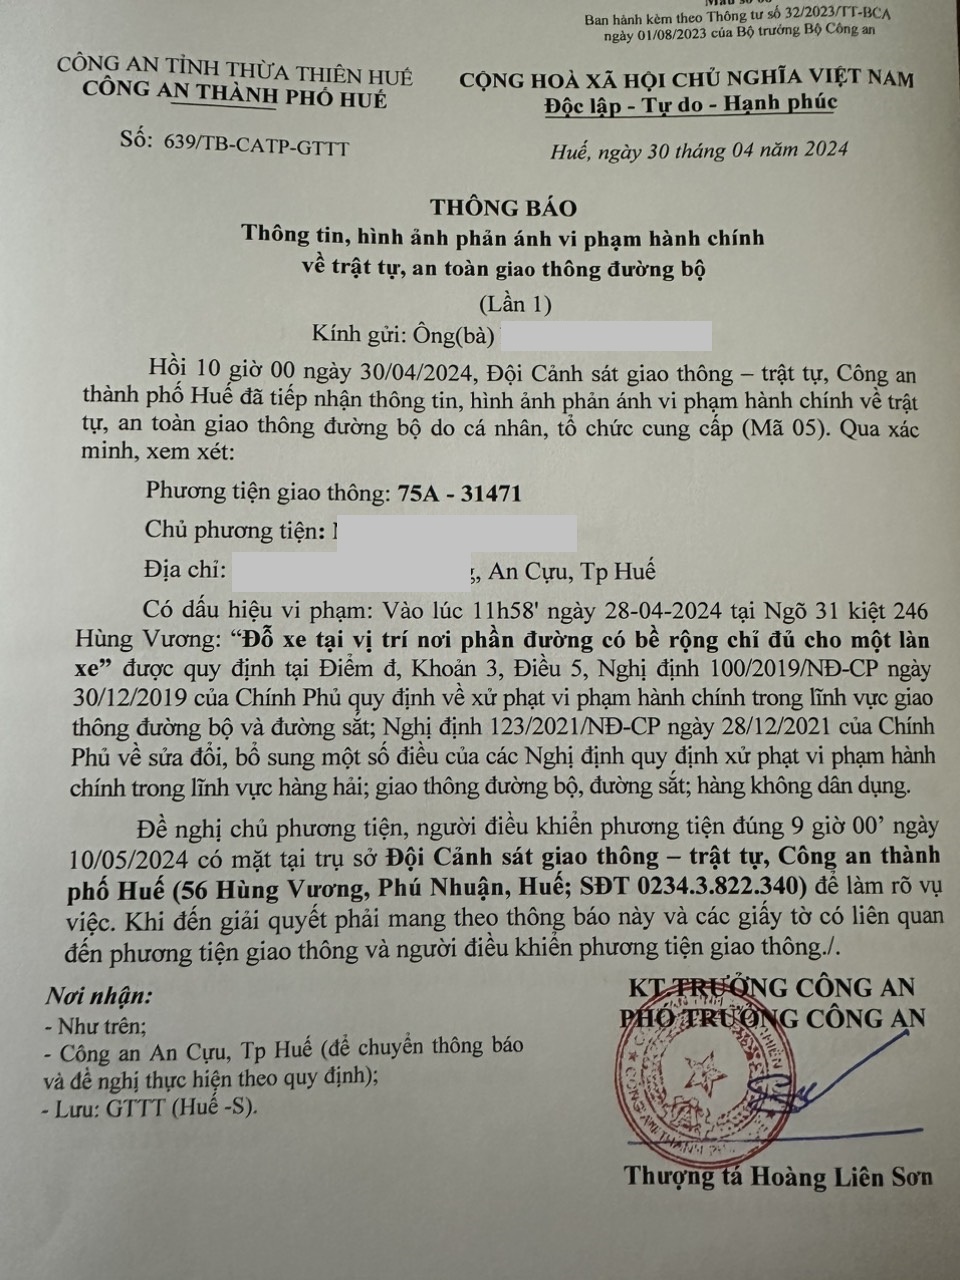 Ban hành kèm theo Thông tư số 32/2023/TT-BCA
ngày 01/08/2023 của Bộ trưởng Bộ Công an
CÔNG AN TỈNH THỪA THIÊN HUẾ
CÔNG AN THÀNH PHỐ HUẾ
CỘNG HOÀ XÃ HỘI CHỦ NGHĨA VIỆT NAM
Độc lập - Tự do - Hạnh phúc
Số: 639/TB-CATP-GTTT
Huế, ngày 30 tháng 04 năm 2024
THÔNG BÁO
Thông tin, hình ảnh phản ánh vi phạm hành chính
về trật tự, an toàn giao thông đường bộ
(Lần 1)
Kính gửi: Ông(bà)
Hồi 10 giờ 00 ngày 30/04/2024, Đội Cảnh sát giao thông – trật tự, Công an
thành phố Huế đã tiếp nhận thông tin, hình ảnh phản ánh vi phạm hành chính về trật
tự, an toàn giao thông đường bộ do cá nhân, tổ chức cung cấp (Mã 05). Qua xác
minh, xem xét:
Phương tiện giao thông: 75A - 31471
Chủ phương tiện:
Địa chỉ: , An Cựu, Tp Huế
Có dấu hiệu vi phạm: Vào lúc 11h58' ngày 28-04-2024 tại Ngõ 31 kiệt 246
Hùng Vương: “Đỗ xe tại vị trí nơi phần đường có bề rộng chỉ đủ cho một làn
xe” được quy định tại Điểm đ, Khoản 3, Điều 5, Nghị định 100/2019/NĐ-CP ngày
30/12/2019 của Chính Phủ quy định về xử phạt vi phạm hành chính trong lĩnh vực giao
thông đường bộ và đường sắt; Nghị định 123/2021/NĐ-CP ngày 28/12/2021 của Chính
Phủ về sửa đổi, bổ sung một số điều của các Nghị định quy định xử phạt vi phạm hành
chính trong lĩnh vực hàng hải; giao thông đường bộ, đường sắt; hàng không dân dụng.
Đề nghị chủ phương tiện, người điều khiển phương tiện đúng 9 giờ 00’ ngày
10/05/2024 có mặt tại trụ sở Đội Cảnh sát giao thông – trật tự, Công an thành
phố Huế (56 Hùng Vương, Phú Nhuận, Huế; SĐT 0234.3.822.340) để làm rõ vụ
việc. Khi đến giải quyết phải mang theo thông báo này và các giấy tờ có liên quan
đến phương tiện giao thông và người điều khiển phương tiện giao thông./.
Nơi nhận:
- Như trên;
- Công an An Cựu, Tp Huế (để chuyển thông báo
và đề nghị thực hiện theo quy định);
- Lưu: GTTT (Huế -S).
KT.TRƯỞNG CÔNG AN
PHÓ TRƯỞNG CÔNG AN
Thượng tá Hoàng Liên Sơn